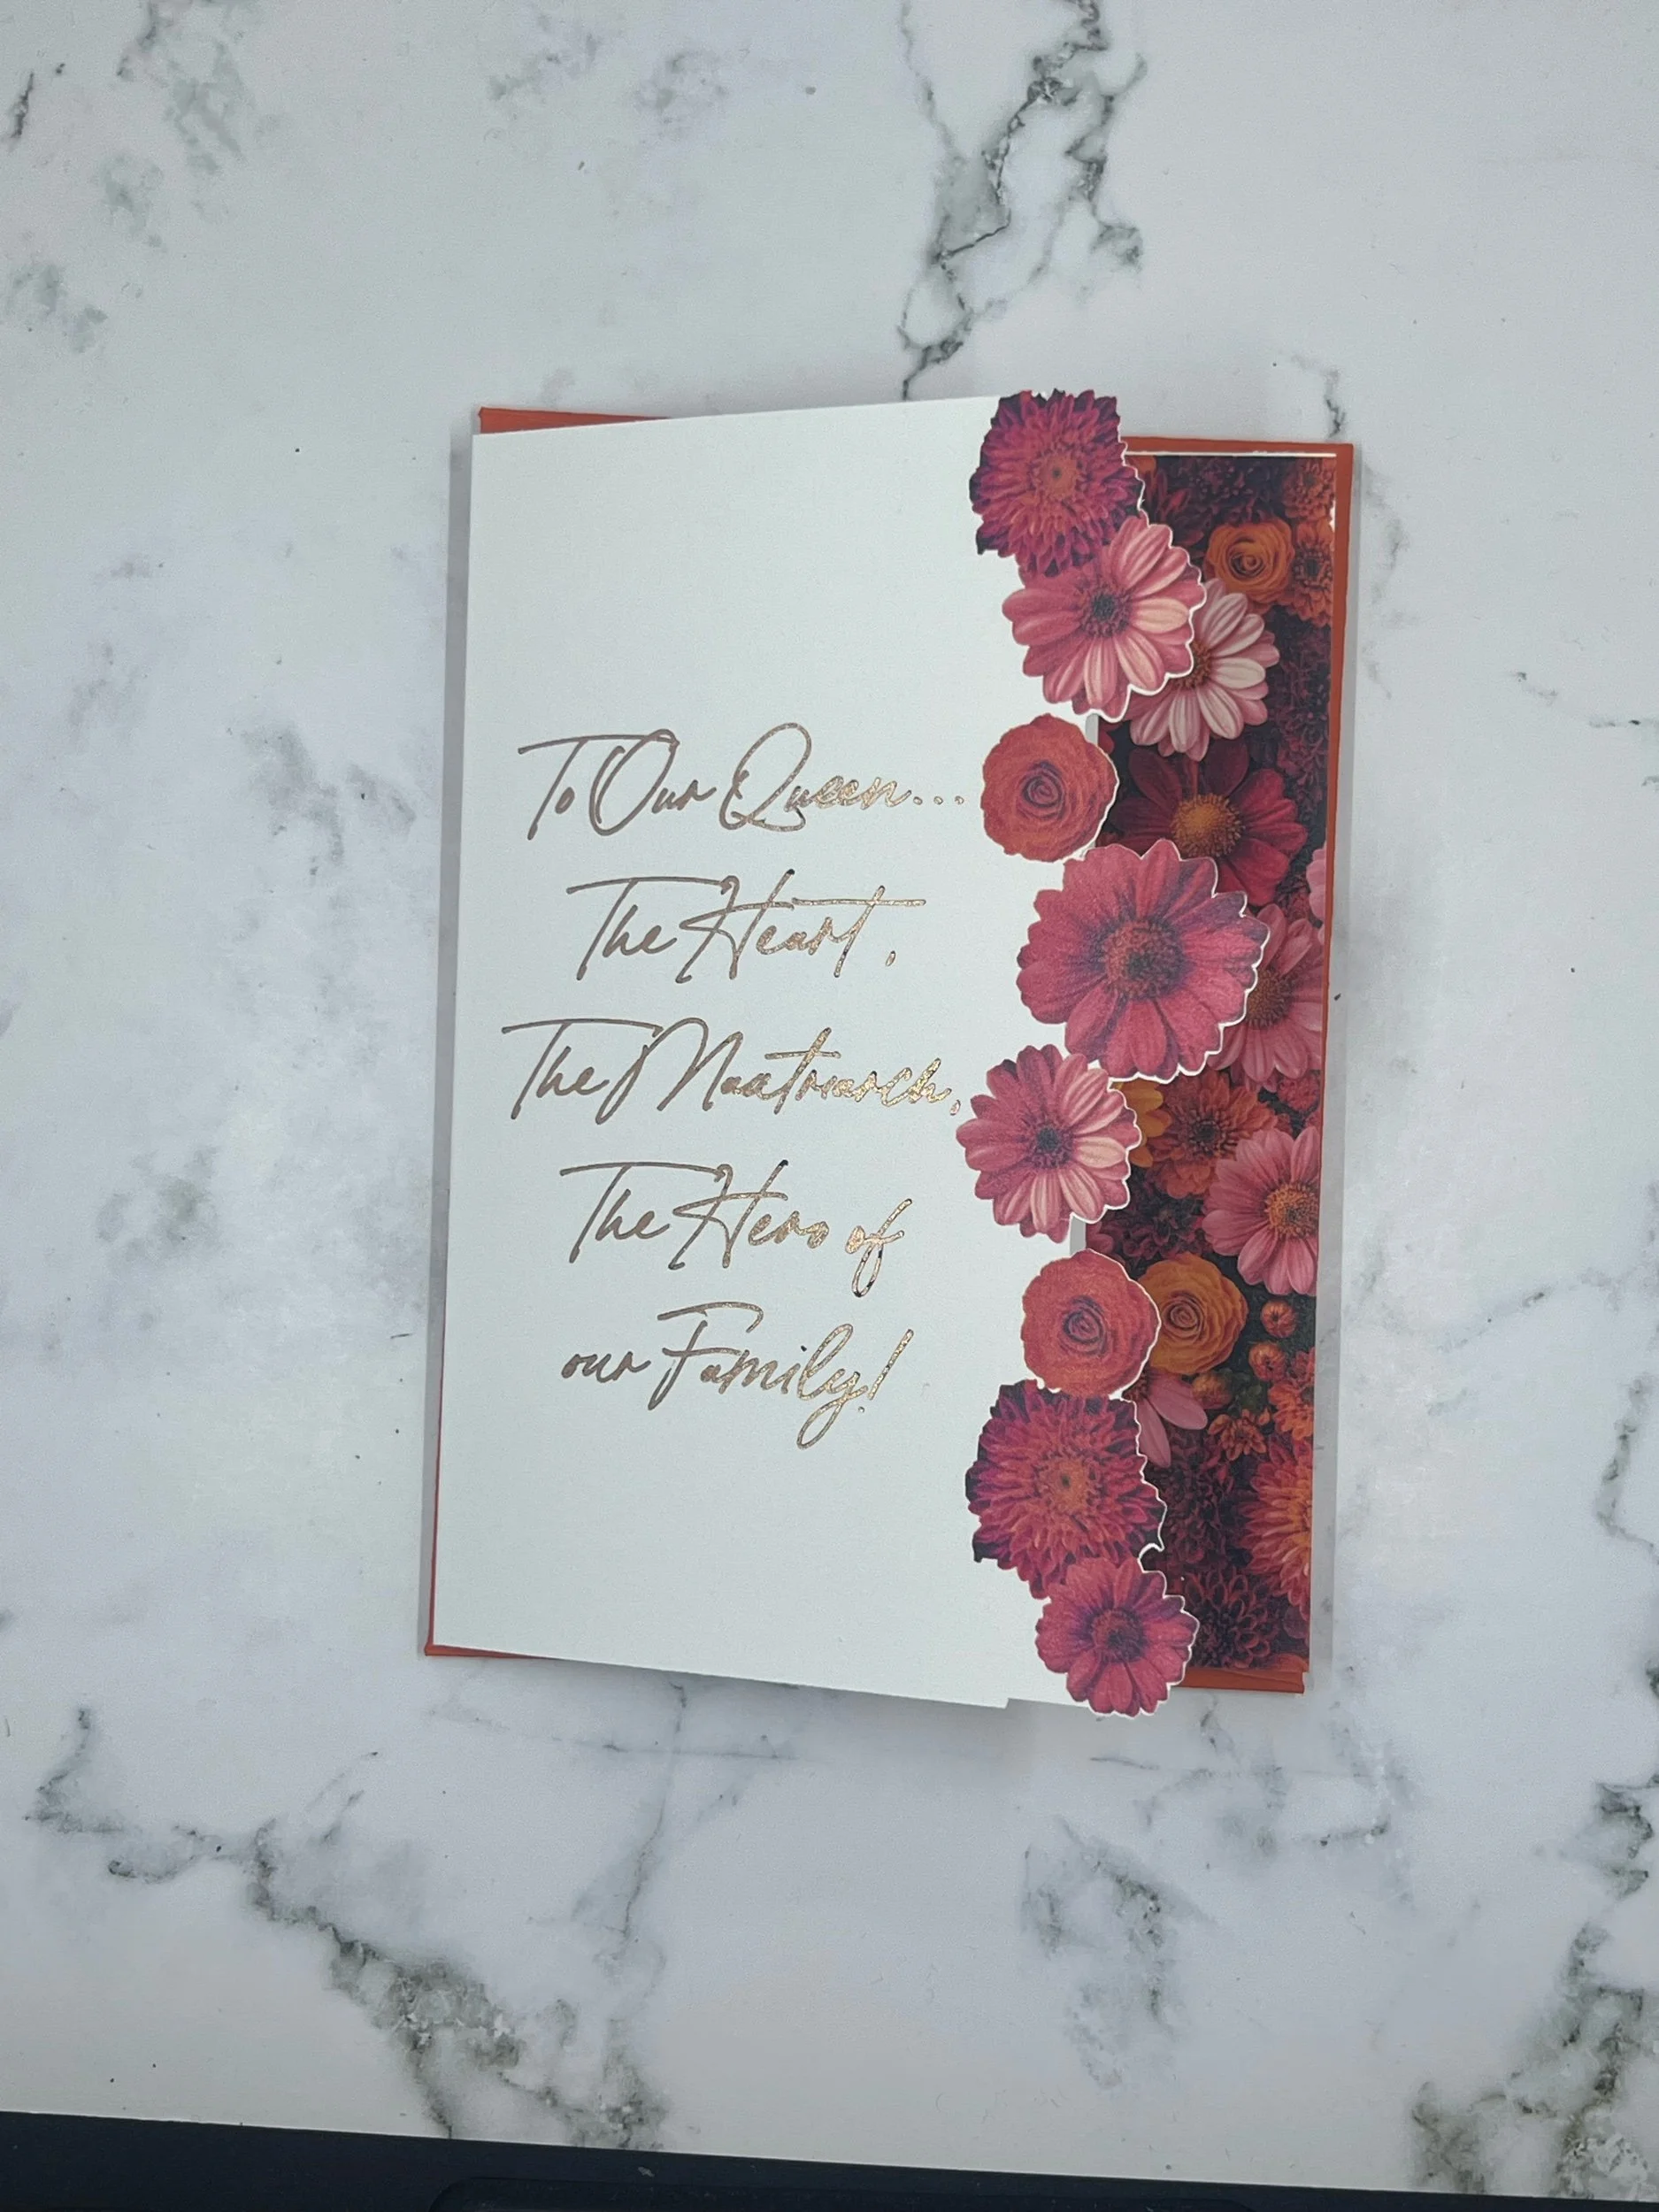 To Our Queen...
The Heart,
The Matriarch,
The Hero of
our Family!